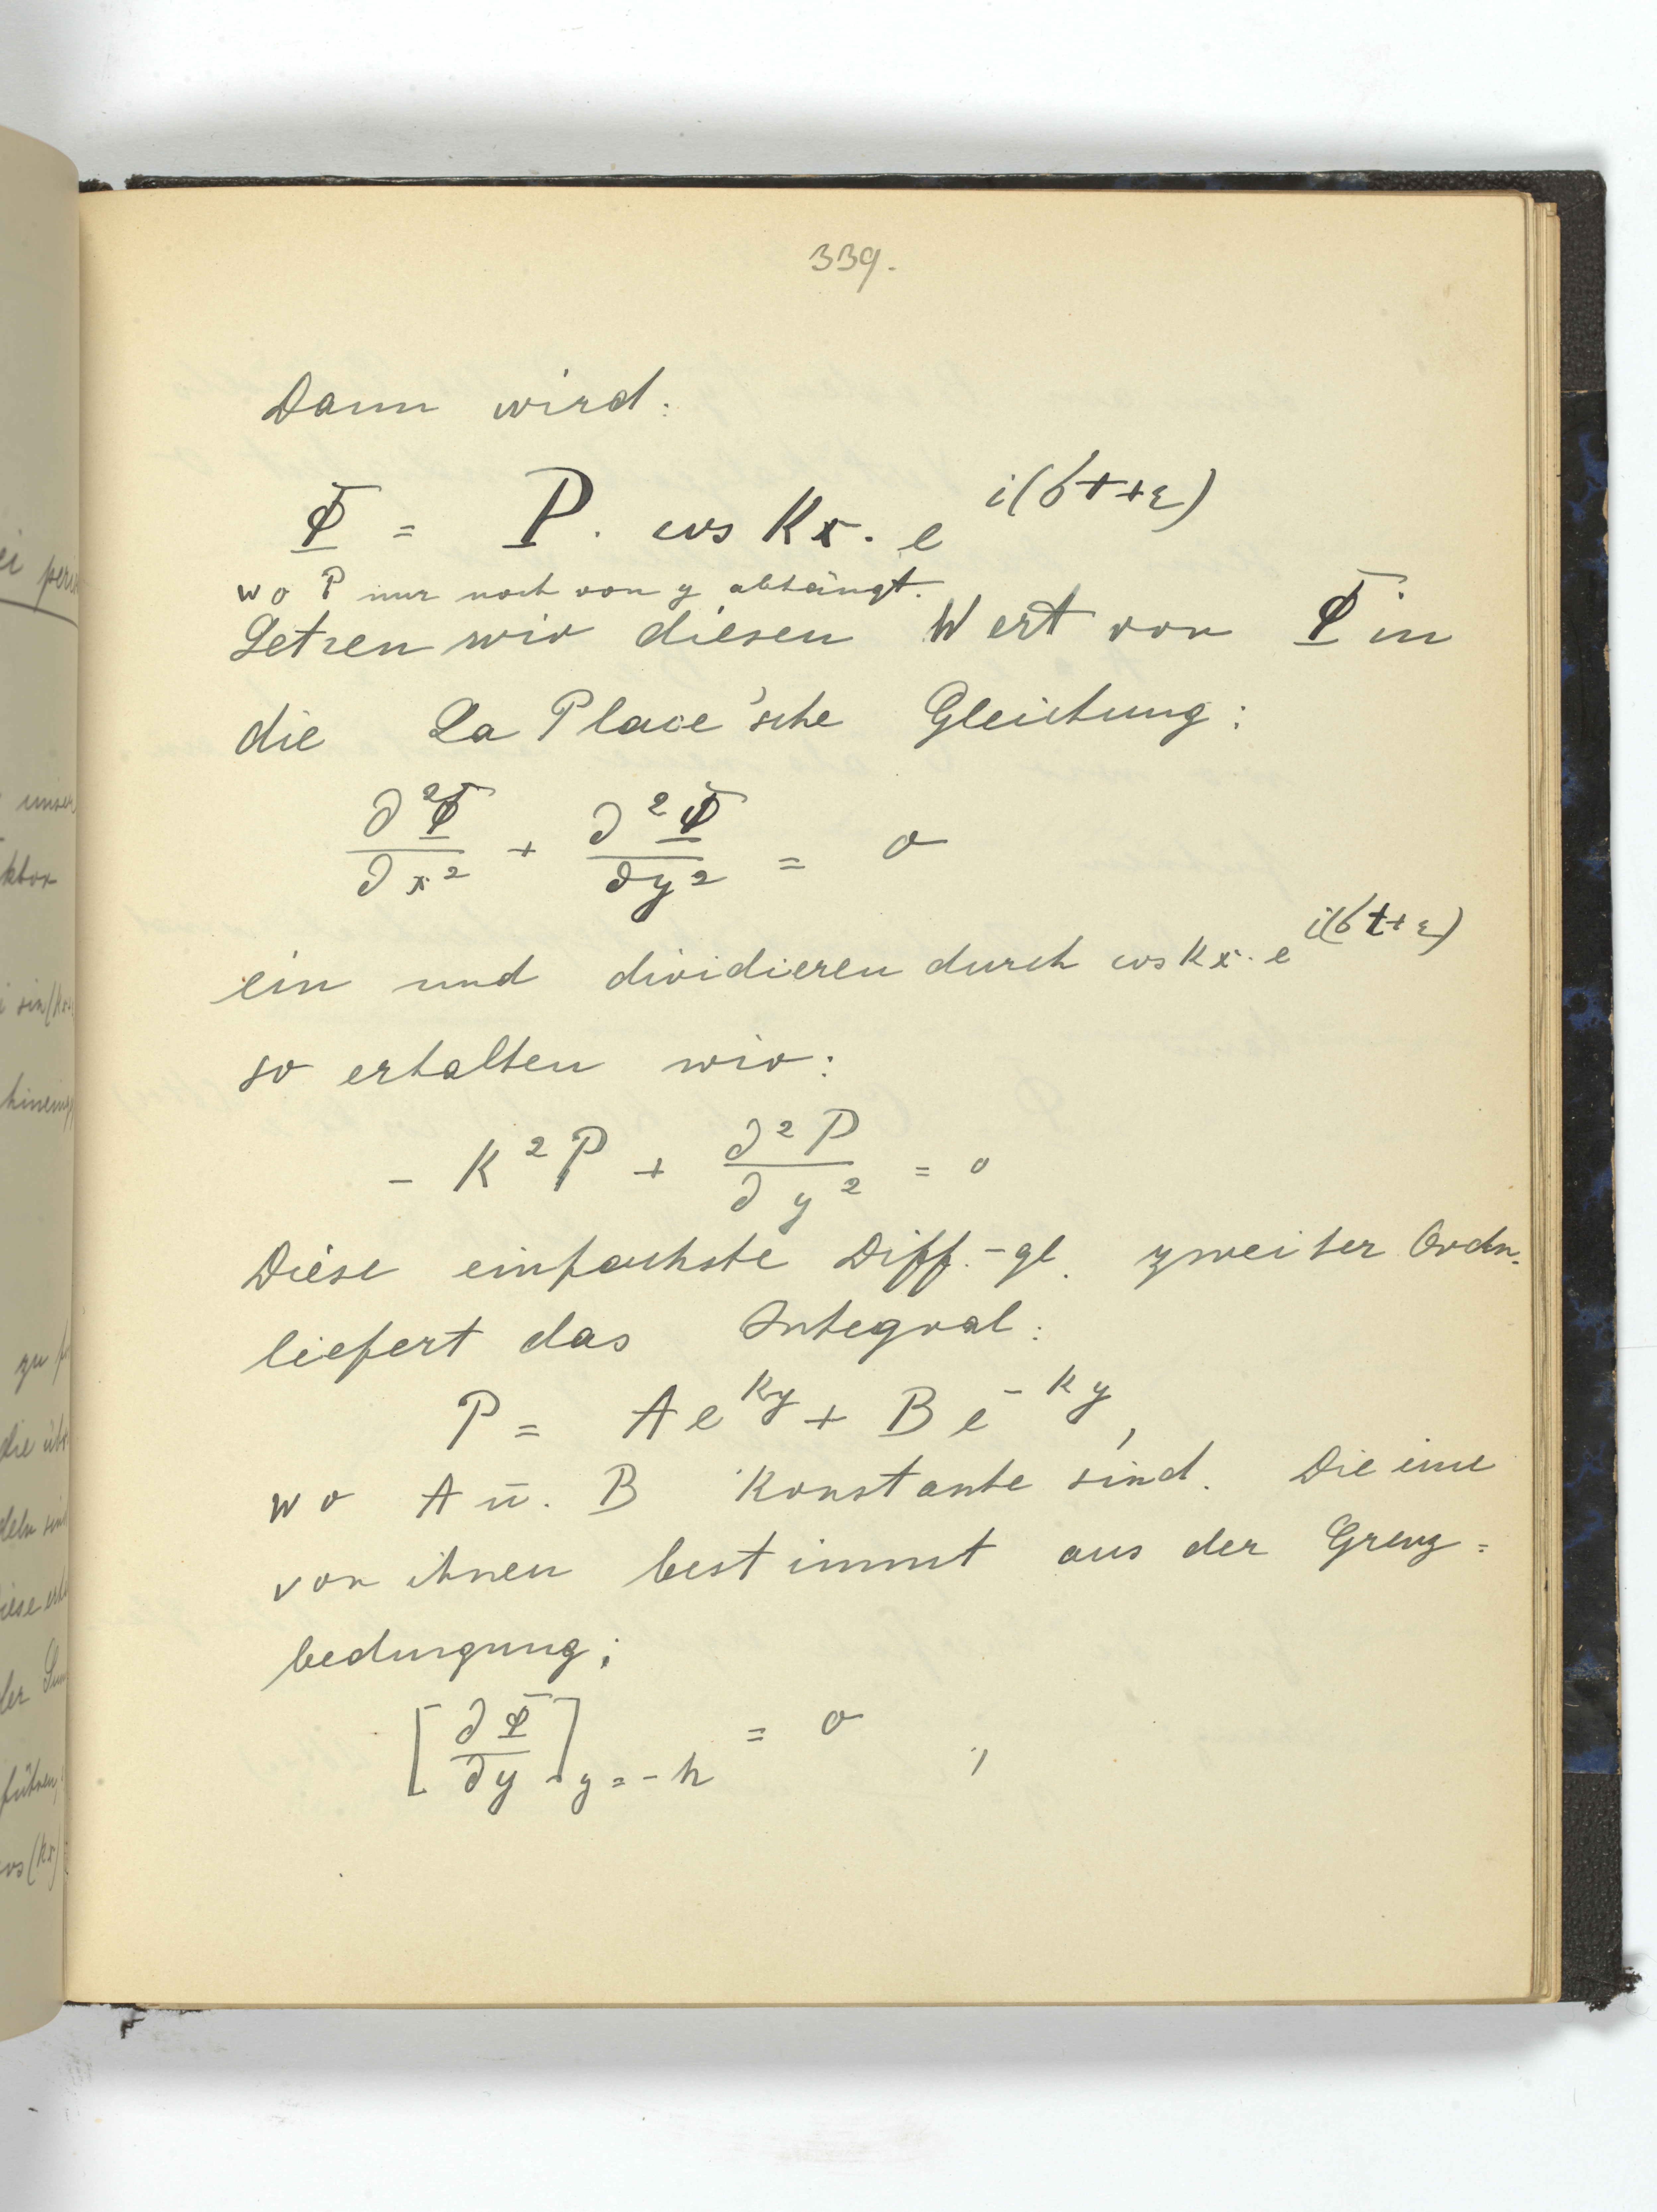 339.
Dann wird:
Φ = P. cos Kx. e^{i(σt+ε)}
wo P nur noch von y abhängt.
Setzen wir diesen Wert von Φ in
die La Place'sche Gleichung:
∂²Φ/∂x² + ∂²Φ/∂y² = 0
ein und dividieren durch cos Kx. e^{i(σt+ε)}
so erhalten wir:
- K²P + ∂²P/∂y² = 0
Diese einfachste Diff.-gl. zweiter Ordn.
liefert das Integral:
P = Ae^{Ky} + Be^{-Ky},
wo A u. B Konstante sind. Die eine
von ihnen bestimmt aus der Grenz=
bedingung;
[∂Φ/∂y]_{y=-h} = 0 ;